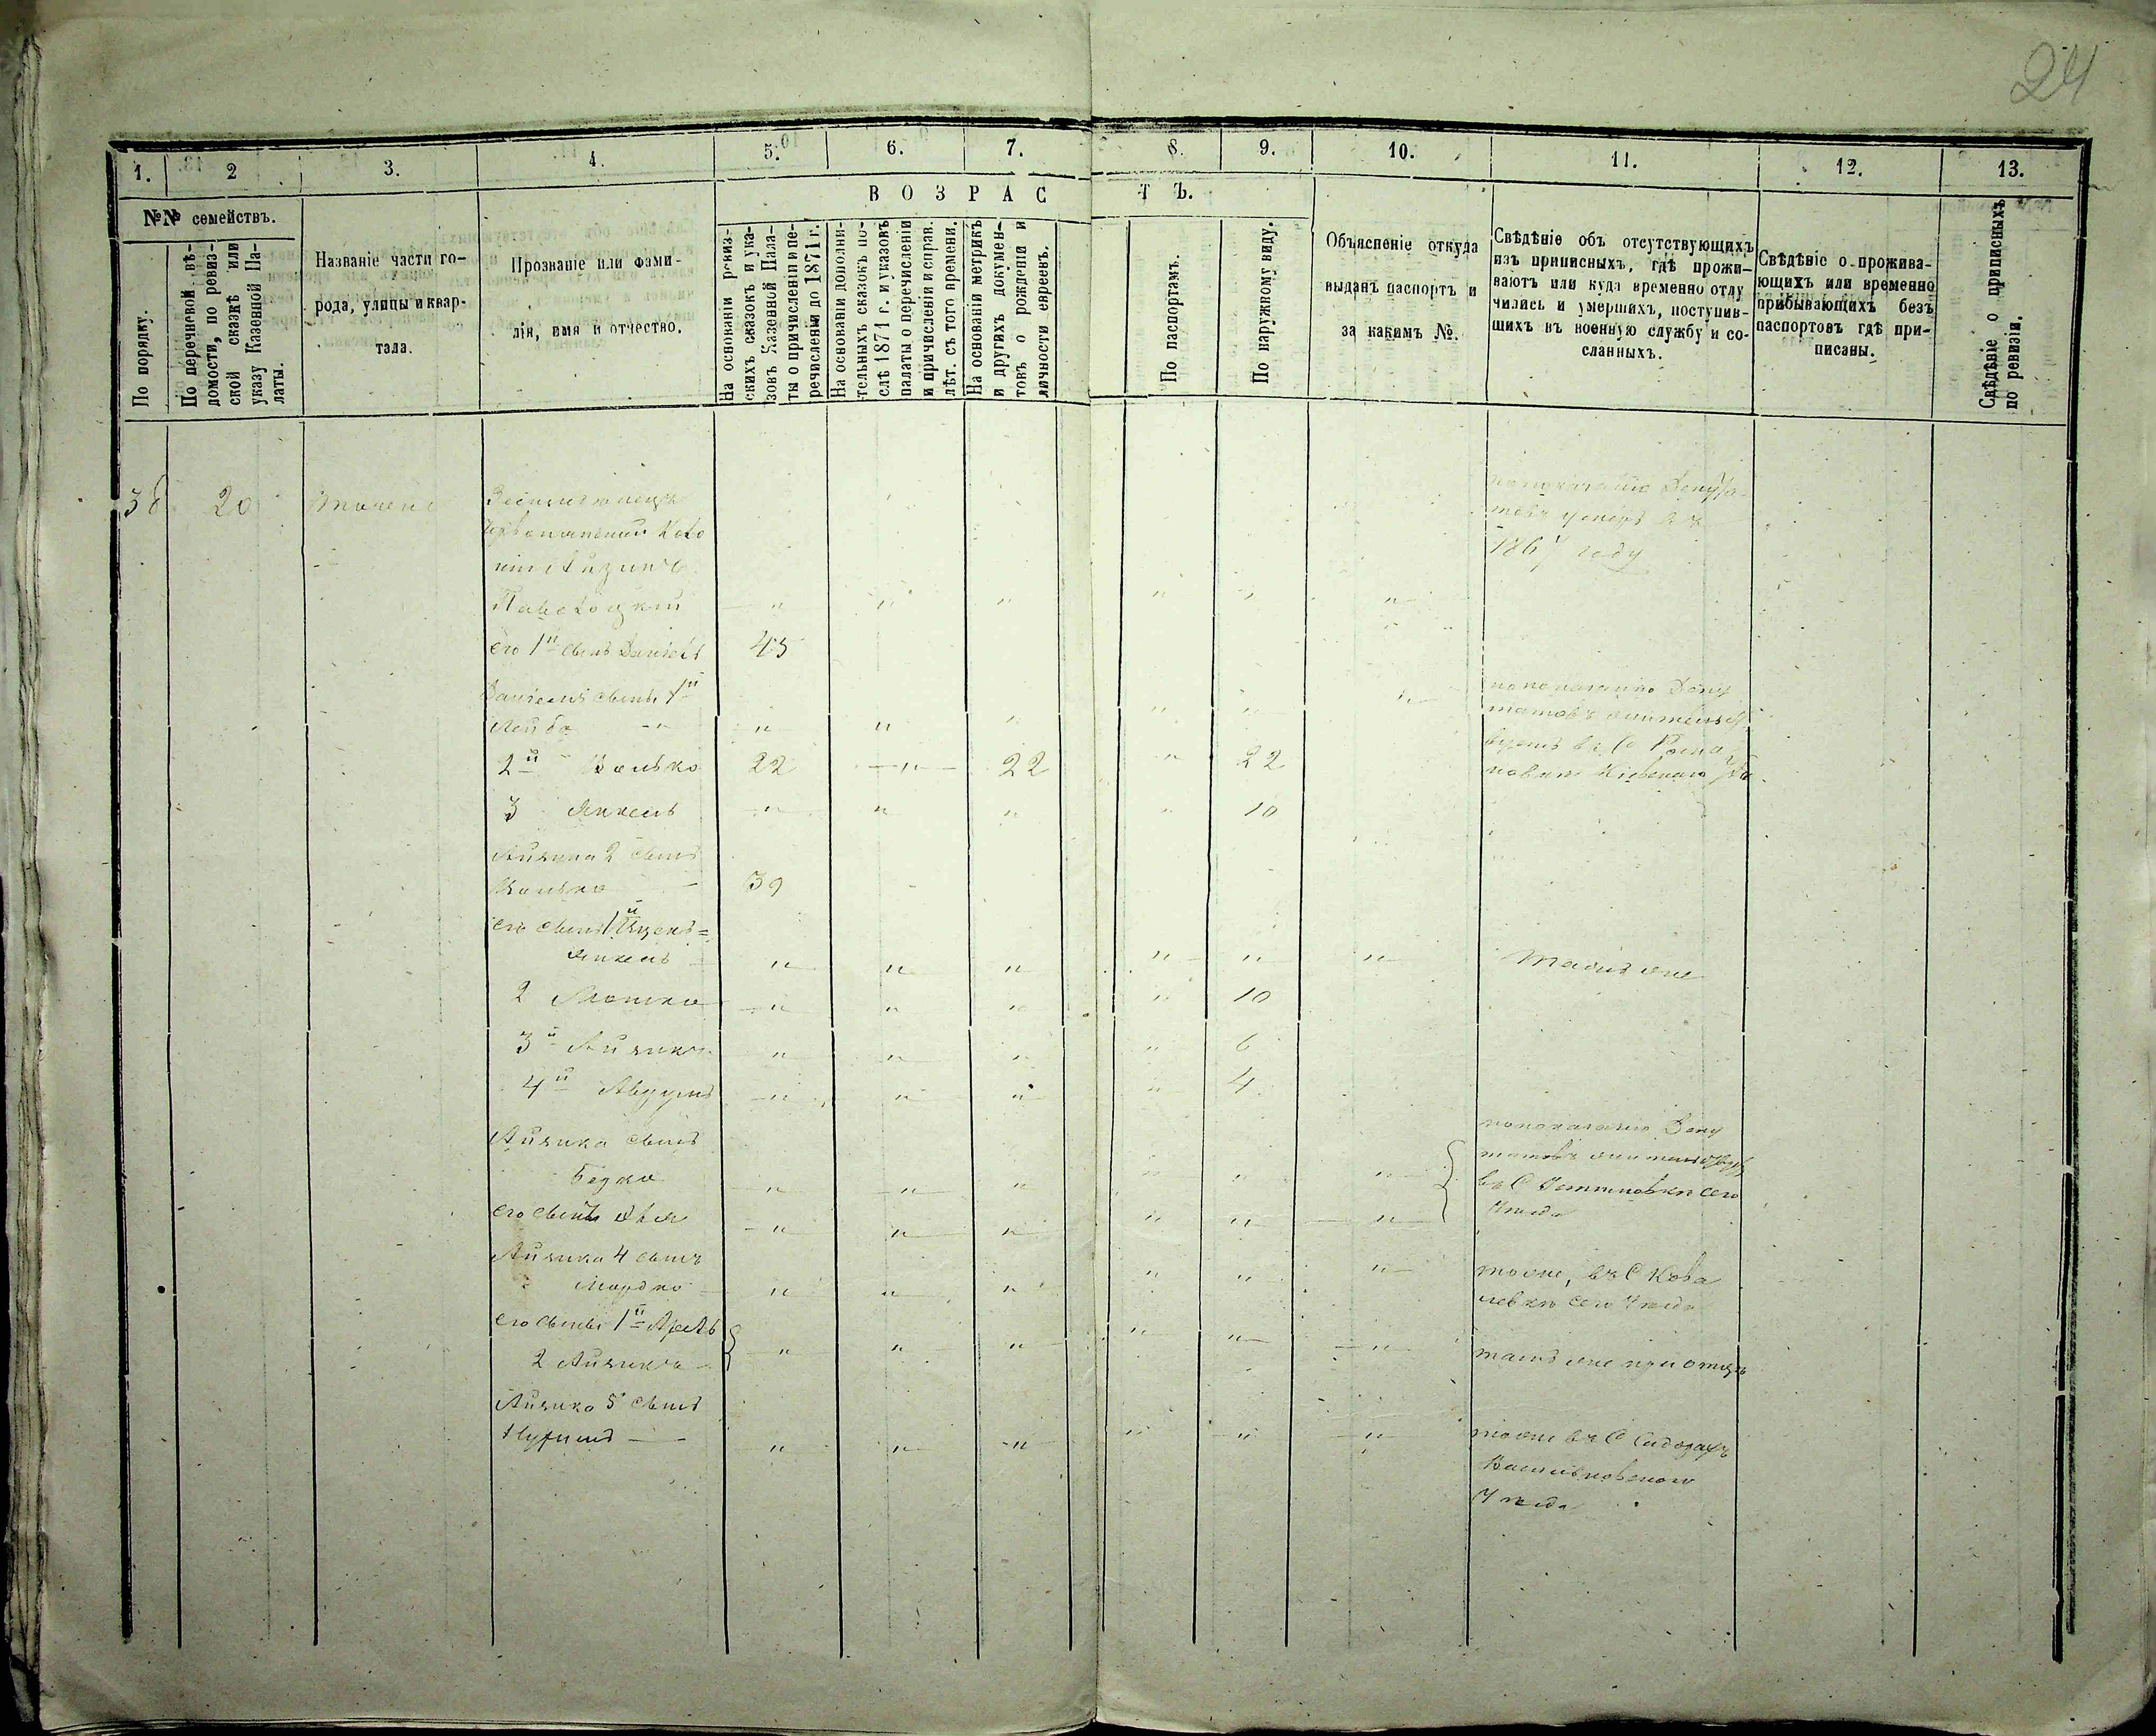 24
1. 2 3. 4. 5. 6. 7. 8. 9. 10. 11. 12. 13.
В О З Р А С Т Ъ.
№№ семействъ.
По порядку.
По перечневой вѣ-
домости, по ревиз-
ской сказкѣ или
указу Казенной Па-
латы.
Названіе части го-
рода, улицы и квар-
тала.
Прозваніе или фами-
лія, имя и отчество.
На основаніи ревиз-
скихъ сказокъ и ука-
зовъ Казенной Пала-
ты о причисленіи и пе-
речисленіи до 1871 г.
На основаніи дополни-
тельныхъ сказокъ по-
слѣ 1871 г. и указовъ
палаты о перечисленіи
и причисленіи и справ.
лѣт. съ того времени.
На основаніи метрикъ
и другихъ докумен-
товъ о рожденіи и
личности евреевъ.
По паспортамъ.
По наружному виду.
Объясненіе откуда
выданъ паспортъ и
за какимъ №.
Свѣдѣніе объ отсутствующихъ
изъ приписныхъ, гдѣ прожи-
ваютъ или куда временно отлу
чились и умершихъ, поступив-
шихъ въ военную службу и со-
сланныхъ.
Свѣдѣніе о прожива-
ющихъ или временно
прибывающихъ безъ
паспортовъ гдѣ при-
писаны.
Свѣдѣніе о приписныхъ
по ревизіи.
38 20
показанію Депута-
товъ умеръ въ
1867 году
Паволоцкий " " " " " "
его 1й сынъ Даніель 45
Даніеля сыны 1й
Лейба " " " " " "
по показанію Депу
татовъ жительст
вуетъ въ С Рома
новки Кіевскаго Уѣз.
2й Волько 22 " 22 " 22
3 Янкель " " " " 10
Айзика 2 сынъ
Волько 39
его сынъ 1й Ицекъ=
Янкель " " " " " " Тамъ же
2 Мошко " " " " 10
3й Айзикъ " " " " 6
4й " " " " 4
Айзика сынъ
Берко " " " " " "
его сынъ " " " " " "
по показанію Депу
татовъ жительствуетъ
въ С Устиновки сего
Уѣзда
Айзика 4 сынъ
Мордко " " " " " "
тоже, въ С Кова
левки сего Уѣзда
его сыны 1й
2 Айзикъ " " " " " " тамъ же при отцѣ
Айзика 5 сынъ
" " " " " "
тоже въ С
Васильковского
Уѣзда